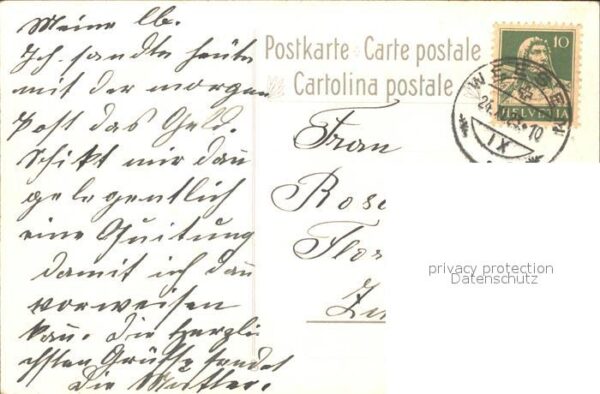 Meine lb.
Ich sandte heute
mit der morgen
Post das Geld.
Schikt mir dan
gelegentlich
eine Quitung
damit ich dan
vorweisen
kan. Die Herzli
chsten Grüsse sendet
Die Mutter.
Postkarte - Carte postale
Cartolina postale
10
HELVETIA
WEESEN
IX
Frau
Rose
Flor
Zu
privacy protection
Datenschutz